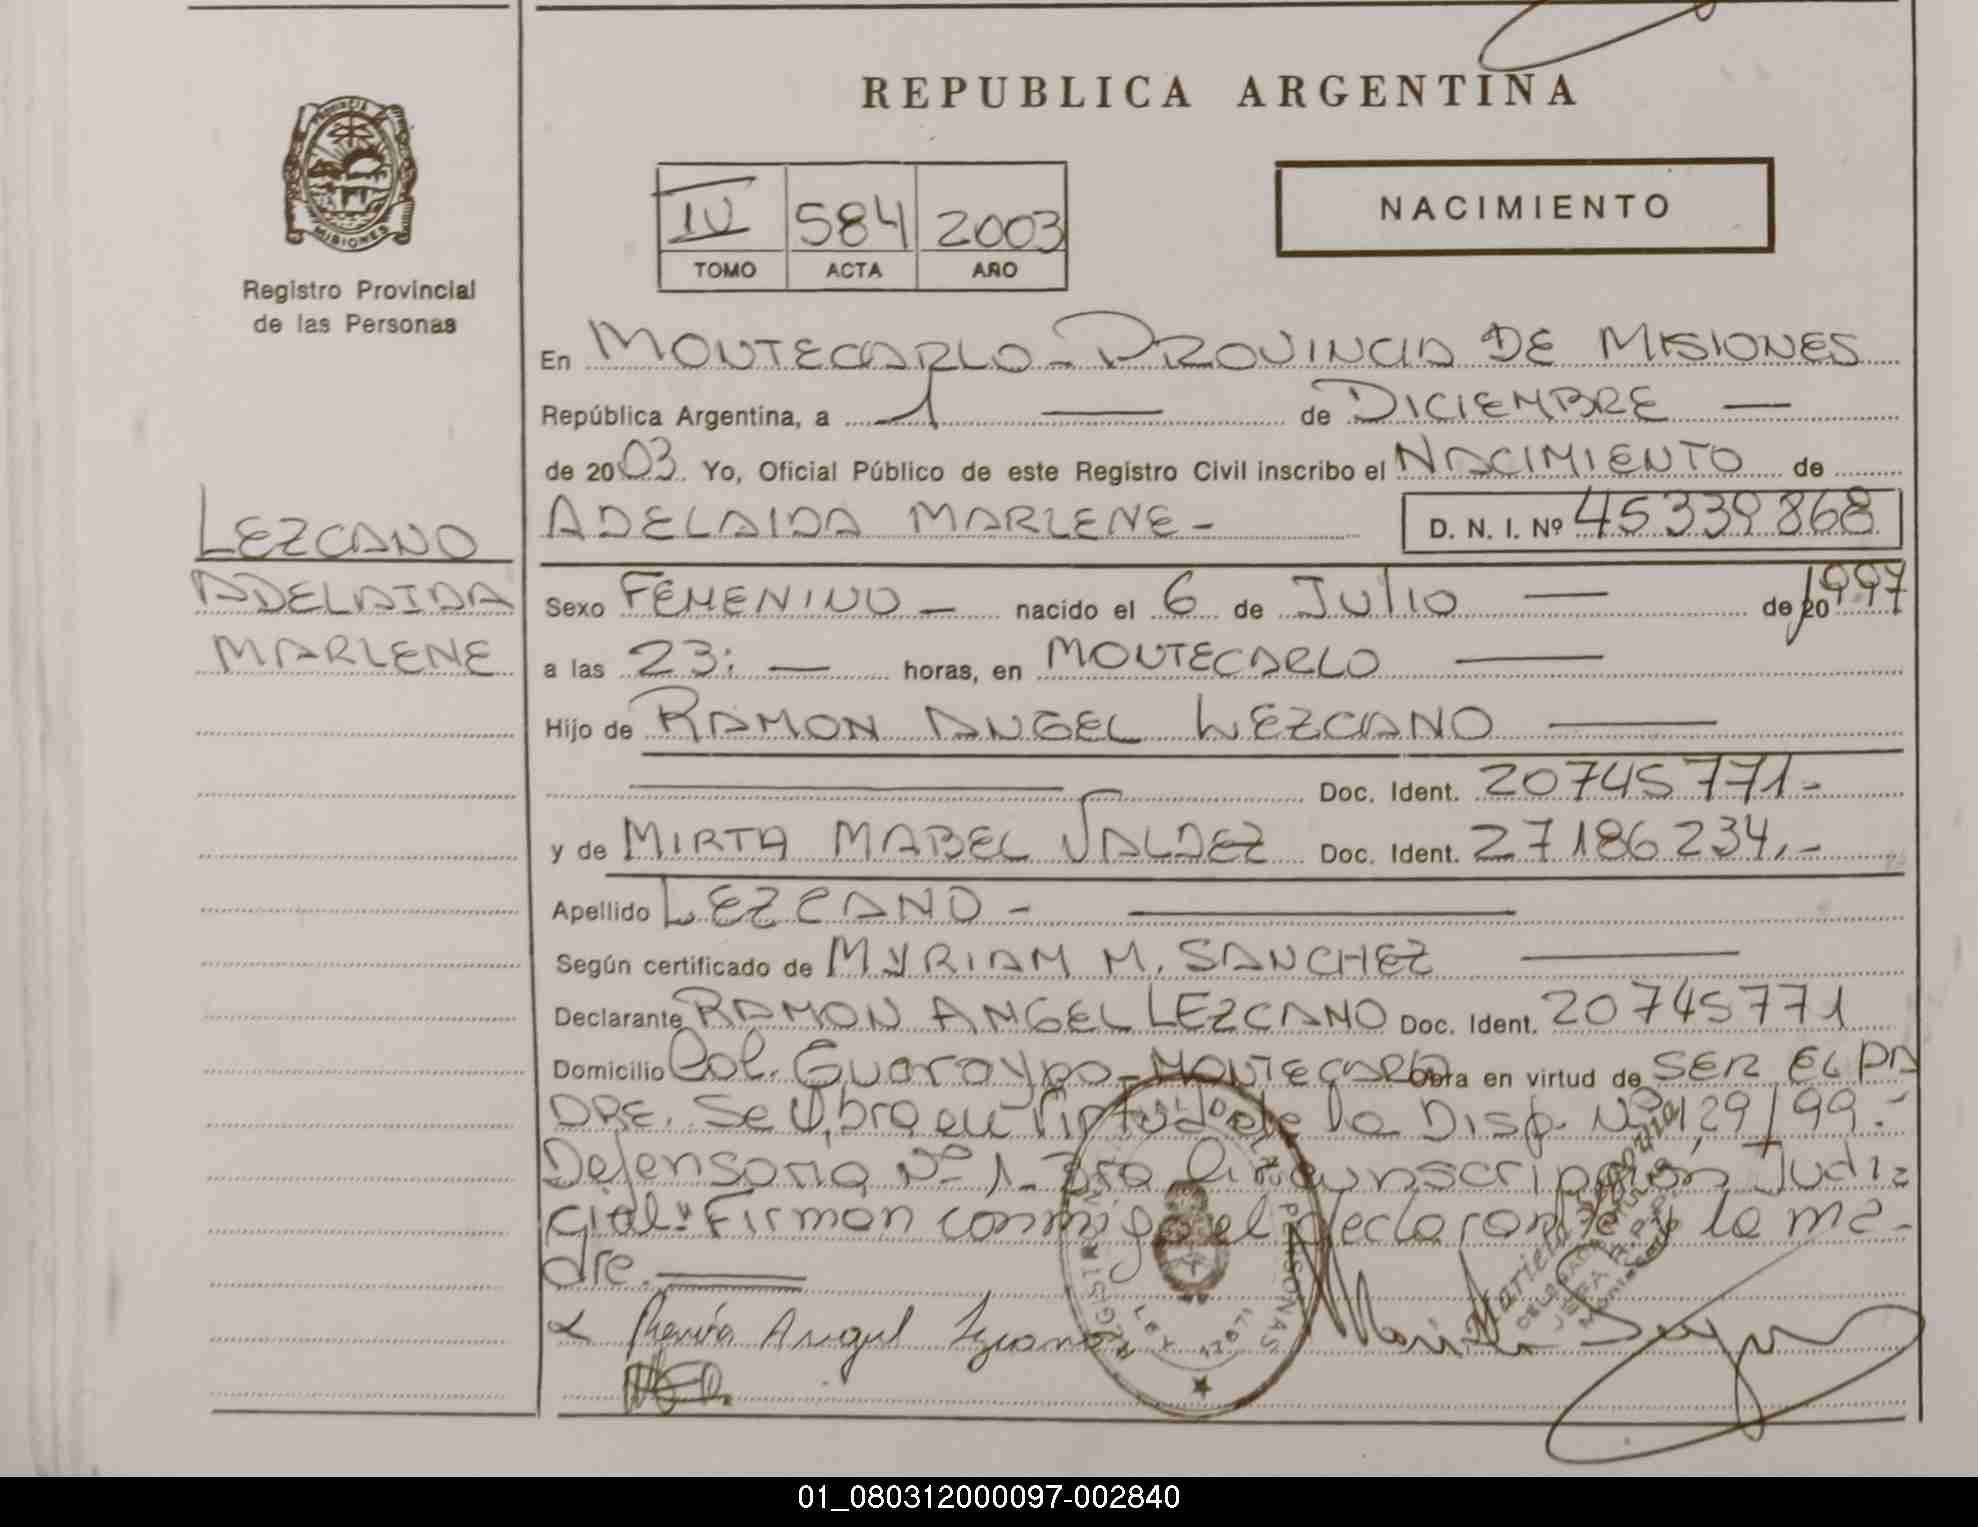 REPUBLICA ARGENTINA
PROVINCIA
MISIONES
Registro Provincial
de las Personas
IV 584 2003
TOMO ACTA AÑO
NACIMIENTO
En MONTECARLO - PROVINCIA DE MISIONES
República Argentina, a 1 — de DICIEMBRE —
de 2003. Yo, Oficial Público de este Registro Civil inscribo el NACIMIENTO de
ADELAIDA MARLENE - D. N. I. Nº 45339868
LEZCANO
ADELAIDA
MARLENE
Sexo FEMENINO - nacido el 6 de Julio — de 20 1997
a las 23: — horas, en MONTECARLO —
Hijo de RAMON ANGEL LEZCANO —
— Doc. Ident. 20745771-
y de MIRTA MABEL VALDEZ Doc. Ident. 27186234.-
Apellido LEZCANO - —
Según certificado de MYRIAM M. SANCHEZ —
Declarante RAMON ANGEL LEZCANO Doc. Ident. 20745771
Domicilio Col. Guaraypo - MONTECARLO Obra en virtud de SER EL PA
DRE. Se Obra en Virtud de la Disp. Nº 129/99.-
Defensoria Nº 1- 3ra Circunscripción Judi
cial" Firman conmigo el declarante y la ma-
dre.
Angel
PERSONAS
LEY 12071
01_080312000097-002840